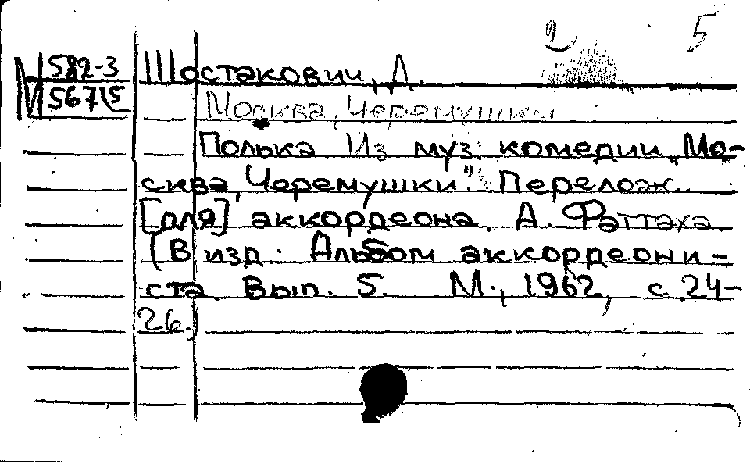 2 5
М 582-3 Шостакович, Д.
567/5 Москва, Черемушки
Полька Из муз. комедии „Мо-
сква, Черемушки". Перелож.
[для] аккордеона А. Фаттаха
(В изд.: Альбом аккордеони-
ста Вып. 5. М., 1962, с. 24-
26.)